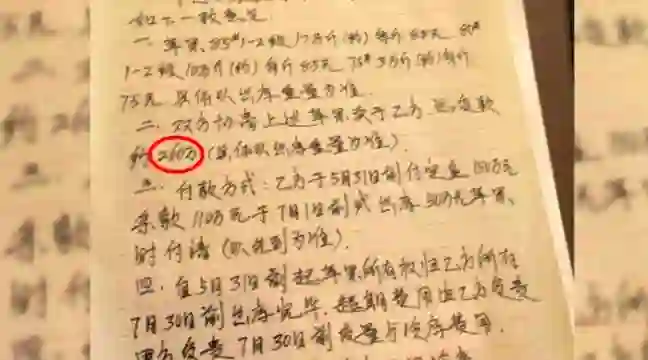 如下一致意见
一. 苹果、85#1-2级17万斤(约)每斤
1-2级10万斤(约)每斤 75#3万斤(约)每斤
75元 具体以出库重量为准.
二. 双方协商上述苹果卖于乙方.总货款
约260万(具体以出库重量为准).
三. 付款方式:乙方于5月31日前付定金150万元
余款110万元于7月1日前或出库50万元苹果、
时付清(以先到为准).
四. 自5月31日前起苹果所有权归乙方所有
7月30日前出库完毕.超期费用由乙方负责
甲方负责7月30日前质量与冷库费用.